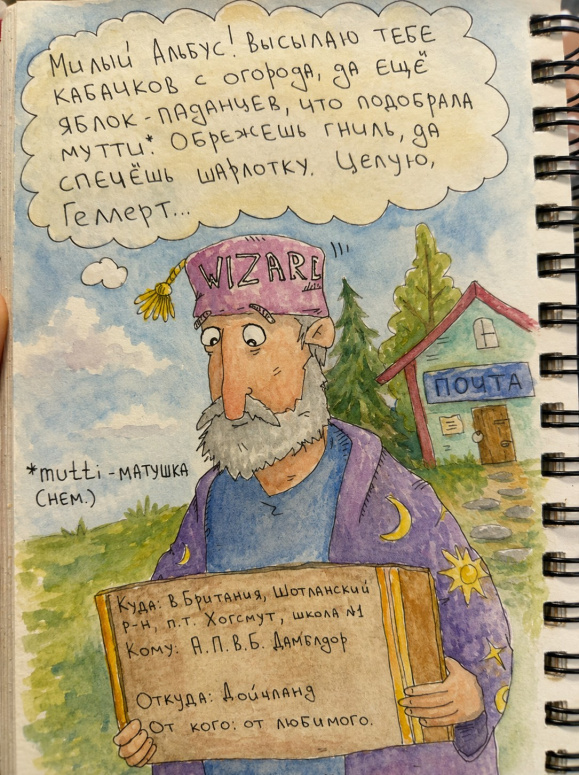 Милый Альбус! Высылаю тебе
кабачков с огорода, да ещё
яблок-паданцев, что подобрала
мутти*. Обрежешь гниль, да
спечёшь шарлотку. Целую,
Геллерт...
WIZARD
ПОЧТА
*mutti - матушка
(нем.)
Куда: В.Британия, Шотланский
р-н, п.т. Хогсмут, школа №1
Кому: А.П.В.Б. Дамблдор
Откуда: Дойчланд
От кого: от любимого.